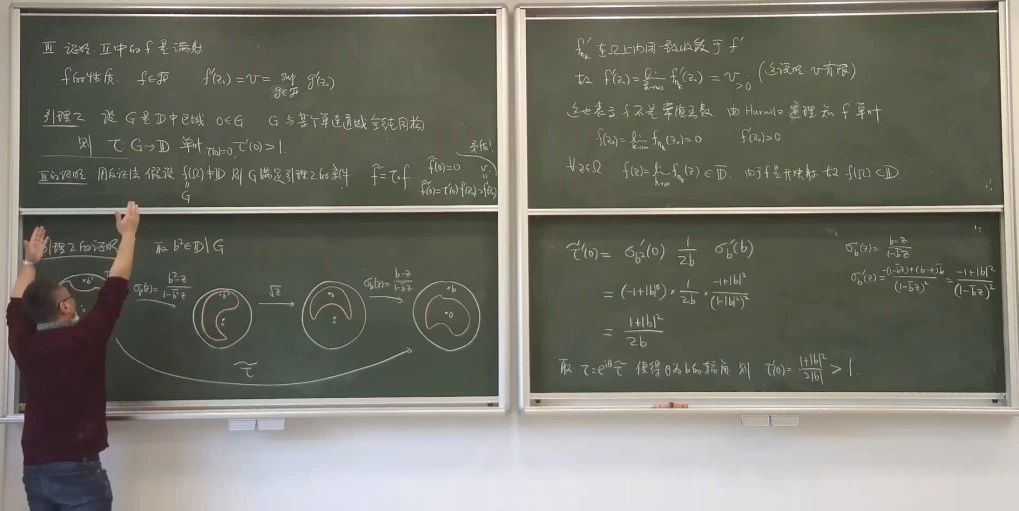 Ⅲ 证明 Ⅱ中的f是满射
f的性质 f∈ℱ f'(z₀)=v=sup_{g∈ℱ} g'(z₀)
引理2 设 G是𝔻中区域 0∈G G与某个单连通域全纯同构
则 τ:G→𝔻 单叶 τ(0)=0, τ'(0)>1
Ⅲ的证明 用反证法 假设 f(Ω)≠𝔻 则G满足引理2的条件 f̃=τ∘f f̃(0)=0
G
f̃'(0)=τ'(0)f'(z₀)>f'(z₀)
矛盾!
引理2的证明 取 b²∈𝔻\G
σ_{b²}(z)=\frac{b²-z}{1-\bar{b}²z} √z σ_b(z)=\frac{b-z}{1-\bar{b}z}
τ̃
f'_{n_k}在Ω上内闭一致收敛于f'
故 f'(z₀)=lim_{k→∞} f'_{n_k}(z₀)=v>0 (这说明 v有限)
这也表示f不是常值函数 由Hurwitz定理知f单叶
f(z₀)=lim_{k→∞} f_{n_k}(z₀)=0 f'(z₀)>0
∀z∈Ω f(z)=lim_{k→∞} f_{n_k}(z)∈\bar{𝔻}. 由于f是开映射 故 f(Ω)⊂𝔻.
τ̃'(0)=σ'_{b²}(0) \frac{1}{2b} σ'_b(b)
=(-1+|b|⁴)·\frac{1}{2b}·\frac{-1+|b|²}{(1-|b|²)²}
=\frac{1+|b|²}{2b}
σ_b(z)=\frac{b-z}{1-\bar{b}z}
σ'_b(z)=\frac{-(1-\bar{b}z)+(b-z)\bar{b}}{(1-\bar{b}z)²}=\frac{-1+|b|²}{(1-\bar{b}z)²}
取 τ=e^{iθ}τ̃ 使得θ为b的辐角 则 τ'(0)=\frac{1+|b|²}{2|b|}>1.